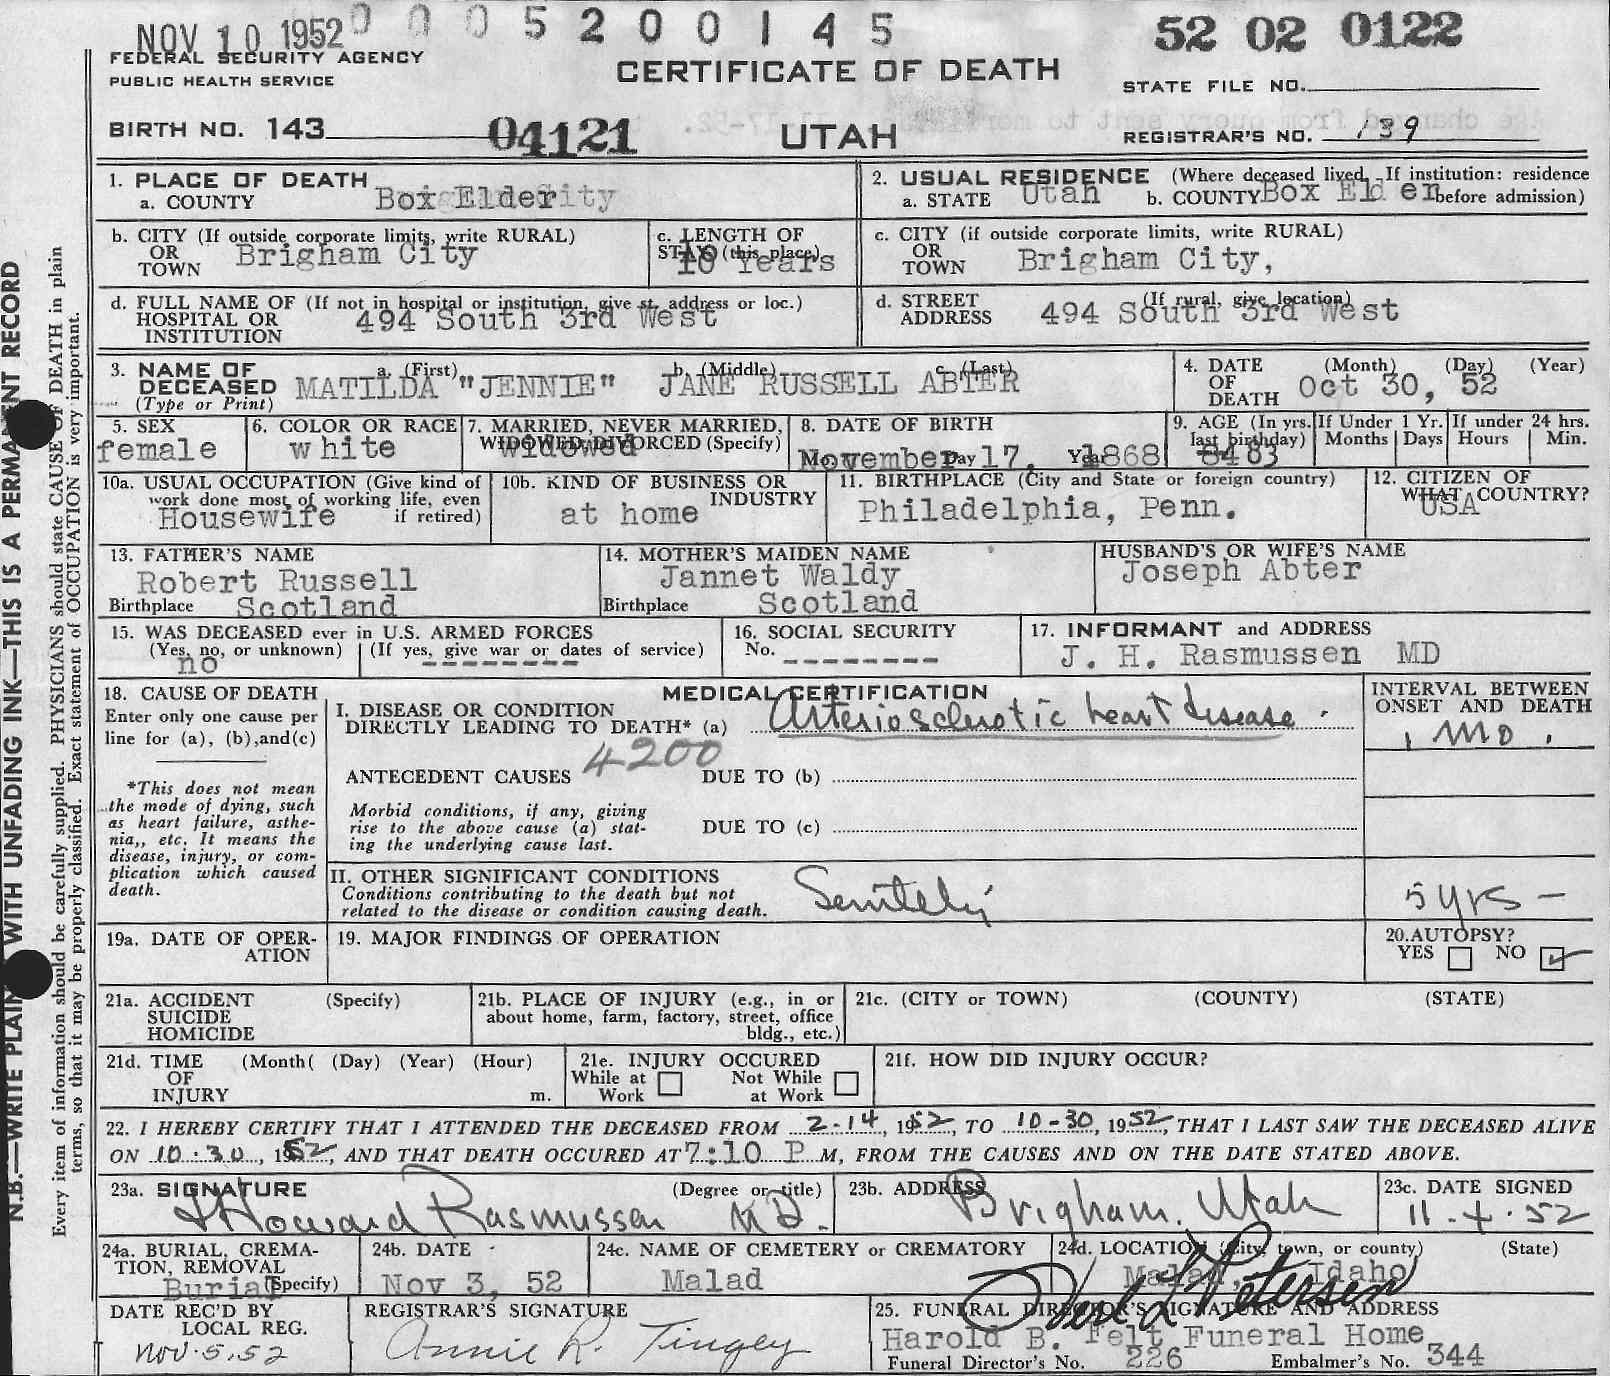 NOV 10 1952
0 0 0 5 2 0 0 1 4 5
52 02 0122
FEDERAL SECURITY AGENCY
PUBLIC HEALTH SERVICE
CERTIFICATE OF DEATH
STATE FILE NO.
BIRTH NO. 143
04121
UTAH
REGISTRAR'S NO. 139
N.B.—WRITE PLAIN WITH UNFADING INK—THIS IS A PERMANENT RECORD
Every item of information should be carefully supplied. PHYSICIANS should state CAUSE OF DEATH in plain
terms, so that it may be properly classified. Exact statement of OCCUPATION is very important.
1. PLACE OF DEATH
a. COUNTY Box Elder
2. USUAL RESIDENCE (Where deceased lived. If institution: residence
a. STATE Utah b. COUNTY Box Elder before admission)
b. CITY (If outside corporate limits, write RURAL)
OR
TOWN Brigham City
c. LENGTH OF
STAY (this place)
10 Years
c. CITY (if outside corporate limits, write RURAL)
OR
TOWN Brigham City,
d. FULL NAME OF (If not in hospital or institution, give st. address or loc.)
HOSPITAL OR
INSTITUTION 494 South 3rd West
d. STREET (If rural, give location)
ADDRESS 494 South 3rd West
3. NAME OF
DECEASED
(Type or Print)
a. (First) b. (Middle) c. (Last)
MATILDA "JENNIE" JANE RUSSELL ABTER
4. DATE (Month) (Day) (Year)
OF
DEATH Oct 30, 52
5. SEX
female
6. COLOR OR RACE
white
7. MARRIED, NEVER MARRIED,
WIDOWED, DIVORCED (Specify)
Widowed
8. DATE OF BIRTH
November Day 17, Year 1868
9. AGE (In yrs. last birthday)
84 83
If Under 1 Yr.
Months Days
If under 24 hrs.
Hours Min.
10a. USUAL OCCUPATION (Give kind of
work done most of working life, even
if retired)
Housewife
10b. KIND OF BUSINESS OR
INDUSTRY
at home
11. BIRTHPLACE (City and State or foreign country)
Philadelphia, Penn.
12. CITIZEN OF
WHAT COUNTRY?
USA
13. FATHER'S NAME
Robert Russell
Birthplace Scotland
14. MOTHER'S MAIDEN NAME
Jannet Waldy
Birthplace Scotland
HUSBAND'S OR WIFE'S NAME
Joseph Abter
15. WAS DECEASED ever in U.S. ARMED FORCES
(Yes, no, or unknown) (If yes, give war or dates of service)
no ---------
16. SOCIAL SECURITY
No. ---------
17. INFORMANT and ADDRESS
J. H. Rasmussen MD
18. CAUSE OF DEATH
Enter only one cause per
line for (a), (b),and(c)
*This does not mean
the mode of dying, such
as heart failure, asthe-
nia,, etc. It means the
disease, injury, or com-
plication which caused
death.
MEDICAL CERTIFICATION
I. DISEASE OR CONDITION
DIRECTLY LEADING TO DEATH* (a) Arteriosclerotic heart disease.
4200
ANTECEDENT CAUSES DUE TO (b)
Morbid conditions, if any, giving
rise to the above cause (a) stat-
ing the underlying cause last.
DUE TO (c)
INTERVAL BETWEEN
ONSET AND DEATH
1 mo.
II. OTHER SIGNIFICANT CONDITIONS
Conditions contributing to the death but not
related to the disease or condition causing death.
5 yrs -
19a. DATE OF OPER-
ATION
19. MAJOR FINDINGS OF OPERATION
20.AUTOPSY?
YES NO
21a. ACCIDENT (Specify)
SUICIDE
HOMICIDE
21b. PLACE OF INJURY (e.g., in or
about home, farm, factory, street, office
bldg., etc.)
21c. (CITY or TOWN) (COUNTY) (STATE)
21d. TIME (Month( (Day) (Year) (Hour)
OF
INJURY m.
21e. INJURY OCCURED
While at Work Not While at Work
21f. HOW DID INJURY OCCUR?
22. I HEREBY CERTIFY THAT I ATTENDED THE DECEASED FROM 2-14, 1952, TO 10-30, 1952, THAT I LAST SAW THE DECEASED ALIVE
ON 10-30, 1952, AND THAT DEATH OCCURED AT 7:10 P M, FROM THE CAUSES AND ON THE DATE STATED ABOVE.
23a. SIGNATURE (Degree or title)
J Howard Rasmussen M.D.
23b. ADDRESS
Brigham, Utah
23c. DATE SIGNED
11-4-52
24a. BURIAL, CREMA-
TION, REMOVAL
(Specify)
Burial
24b. DATE
Nov 3, 52
24c. NAME OF CEMETERY or CREMATORY
Malad
24d. LOCATION (City, town, or county) (State)
Malad, Idaho
DATE REC'D BY
LOCAL REG.
Nov. 5, 52
REGISTRAR'S SIGNATURE
Annie R. Tingey
25. FUNERAL DIRECTOR'S SIGNATURE AND ADDRESS
Harold B. Felt Funeral Home
Funeral Director's No. 226 Embalmer's No. 344